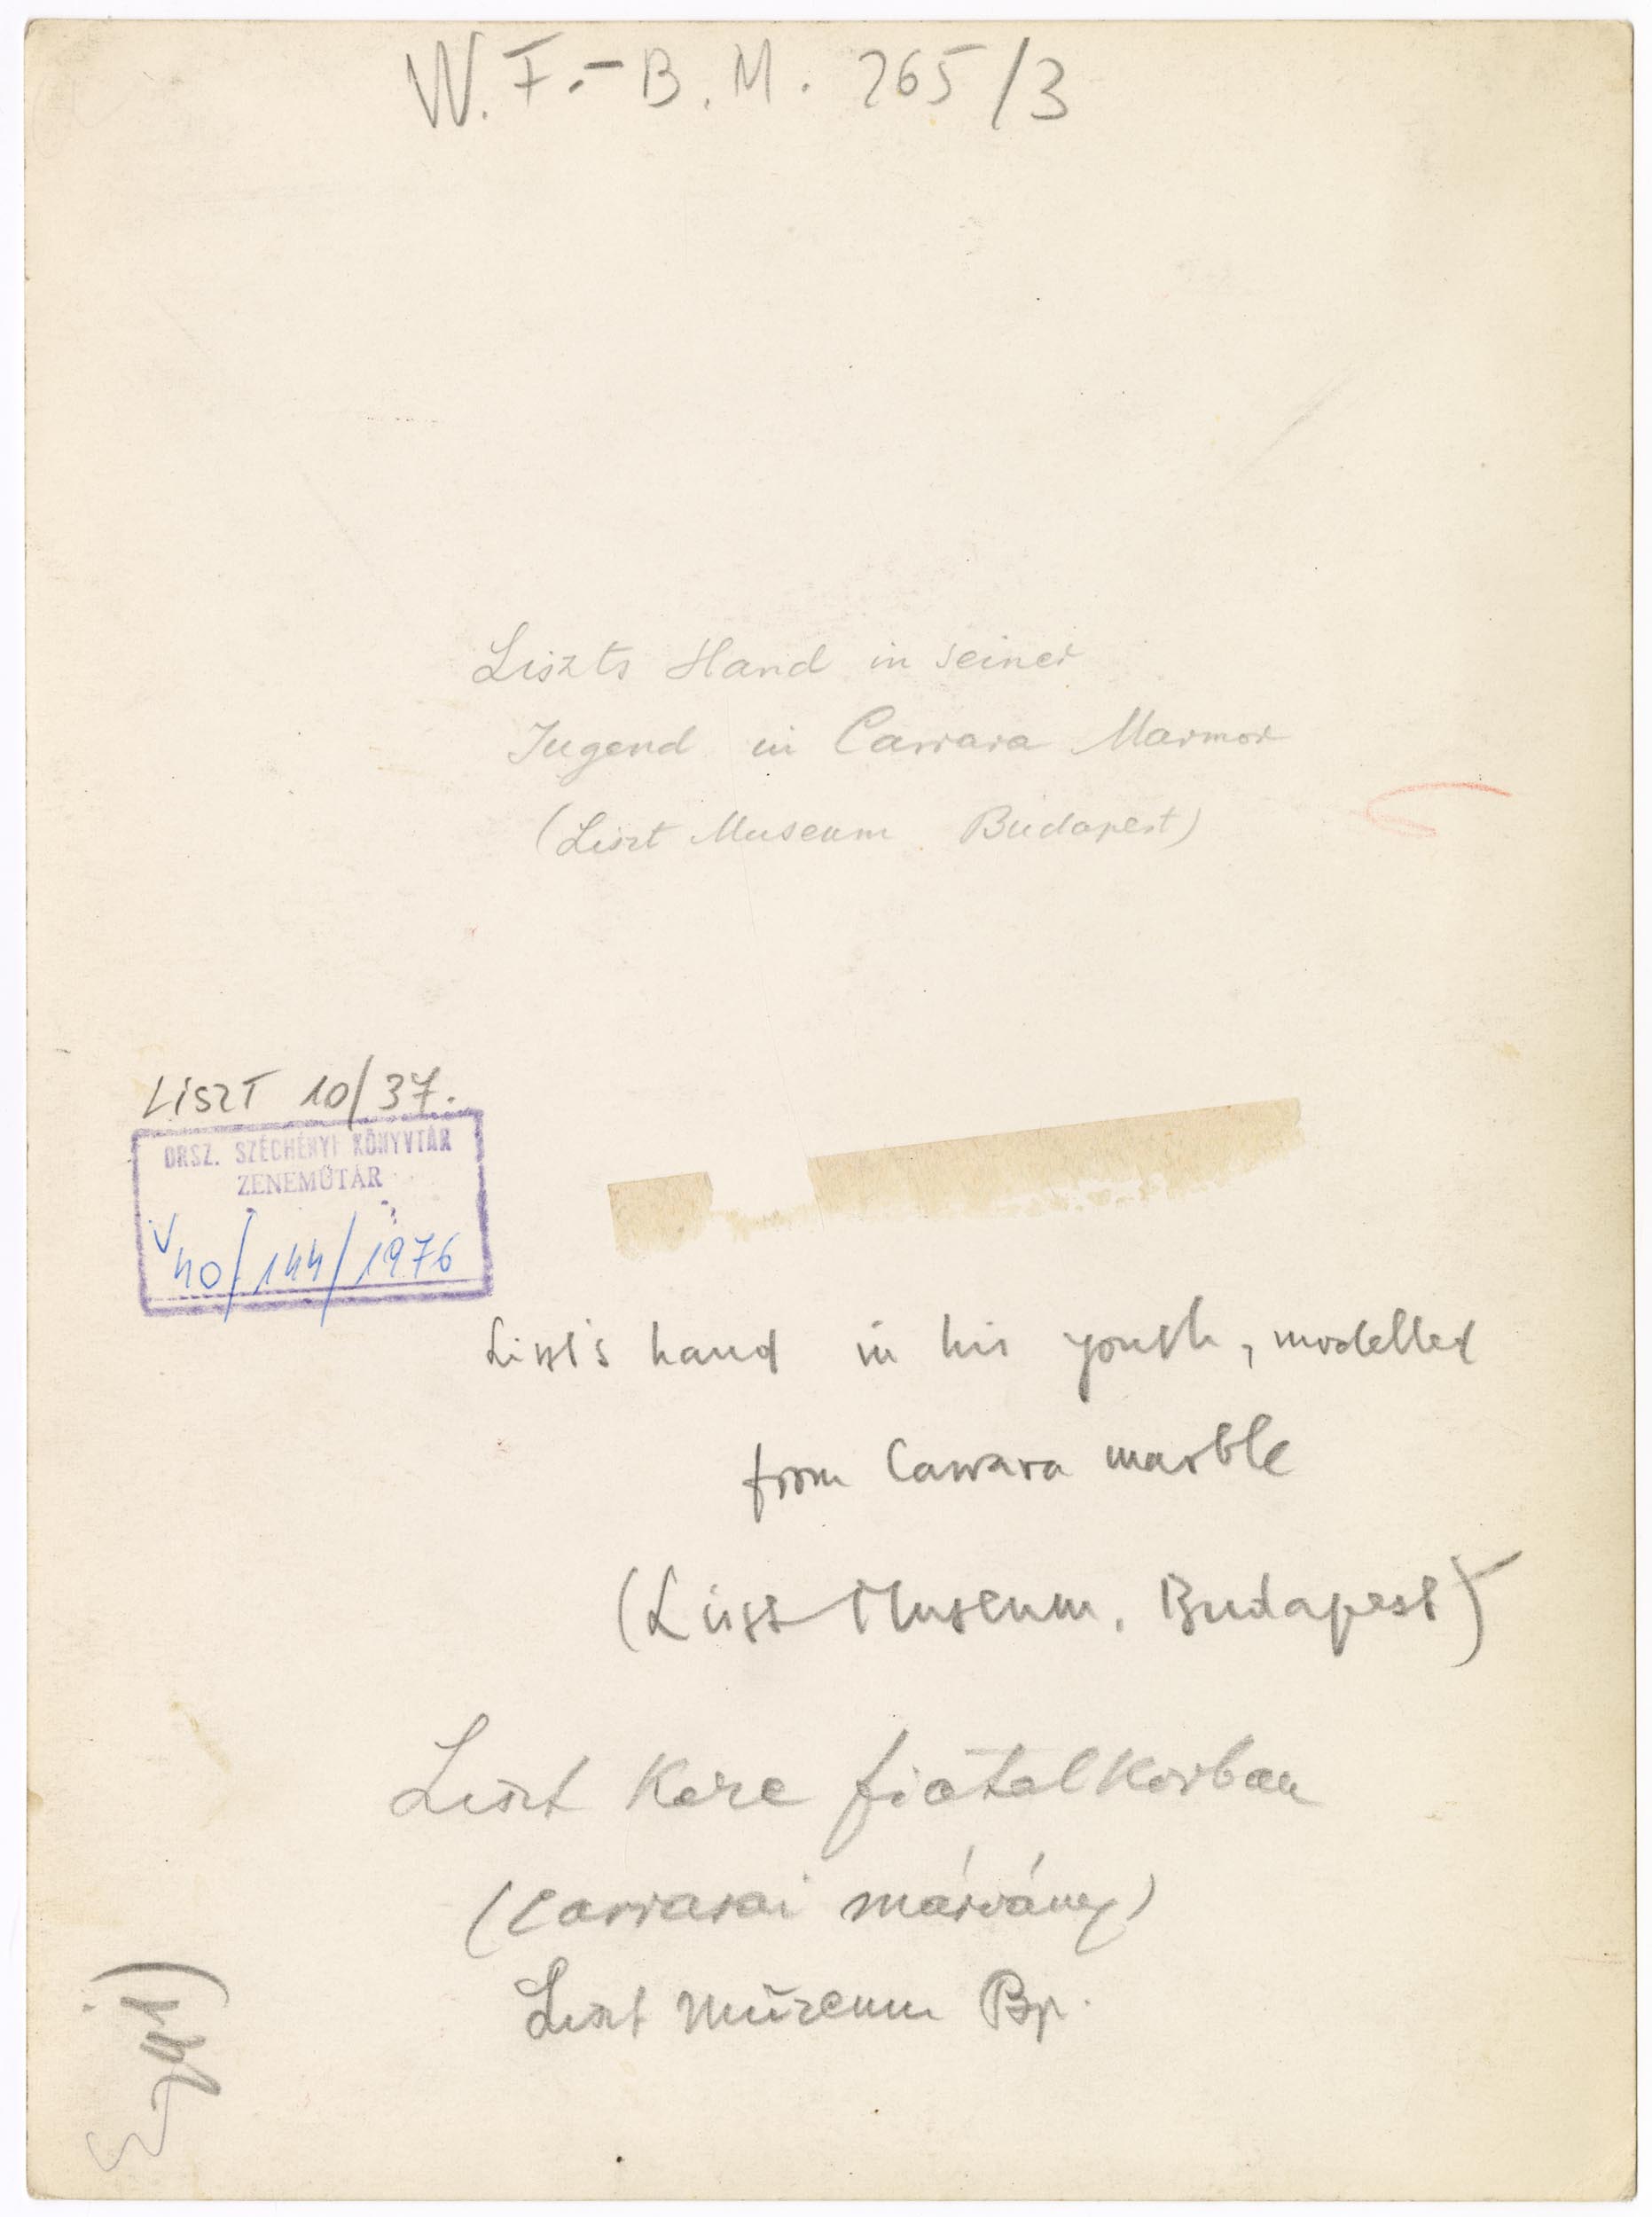 W. F.- B. M. 265/3
Liszts Hand in seiner
Jugend in Carrara Marmor
(Liszt Museum Budapest)
LISZT 10/37.
ORSZ. SZÉCHÉNYI KÖNYVTÁR
ZENEMŰTÁR
40/144/1976
Liszt's hand in his youth, modelled
from Carrara marble
(Liszt Museum, Budapest)
Liszt Keze fiatalkorban
(Carrarai márvány)
Liszt Múzeum Bp.